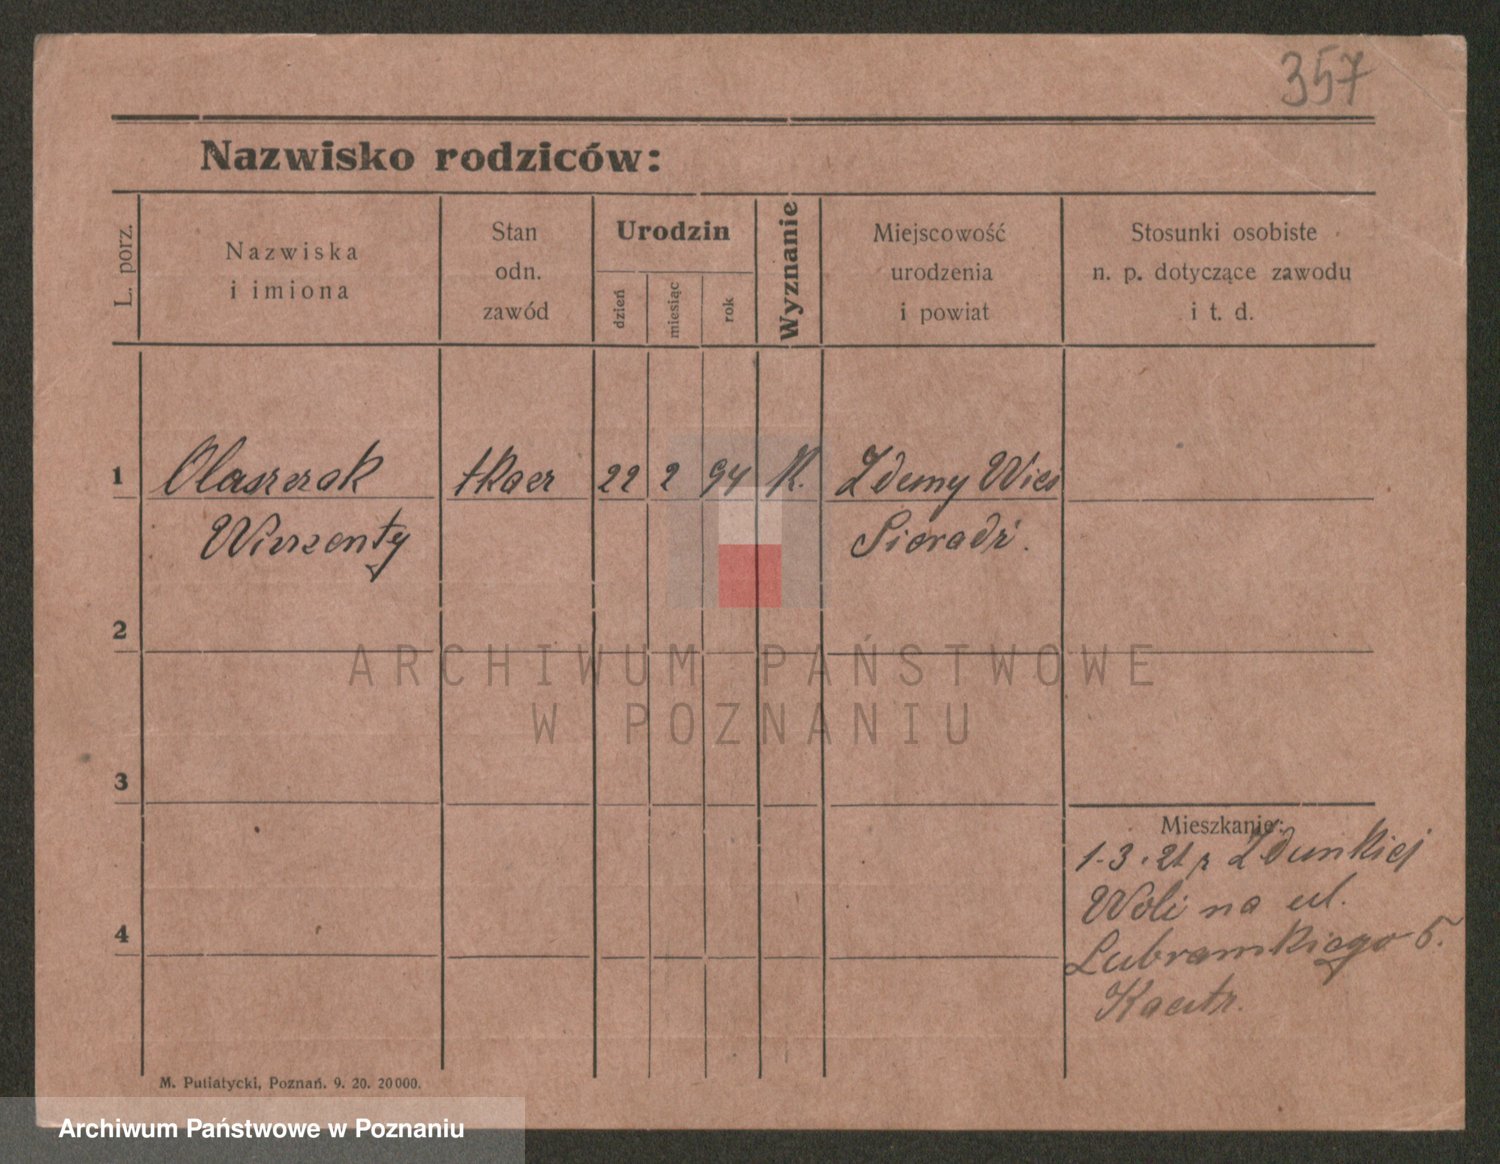 357
Nazwisko rodziców:
L. porz.
Nazwiska
i imiona
Stan
odn.
zawód
Urodzin
dzień
miesiąc
rok
Wyznanie
Miejscowość
urodzenia
i powiat
Stosunki osobiste
n. p. dotyczące zawodu
i t. d.
1
Olaszczak
22 2 94 K.
Sieradź.
2
ARCHIWUM PAŃSTWOWE
W POZNANIU
3
Mieszkanie:
1-3.21 z Zdunkiej
Woli na ul.
4
5.
M. Putiatycki, Poznań. 9. 20. 20000.
Archiwum Państwowe w Poznaniu